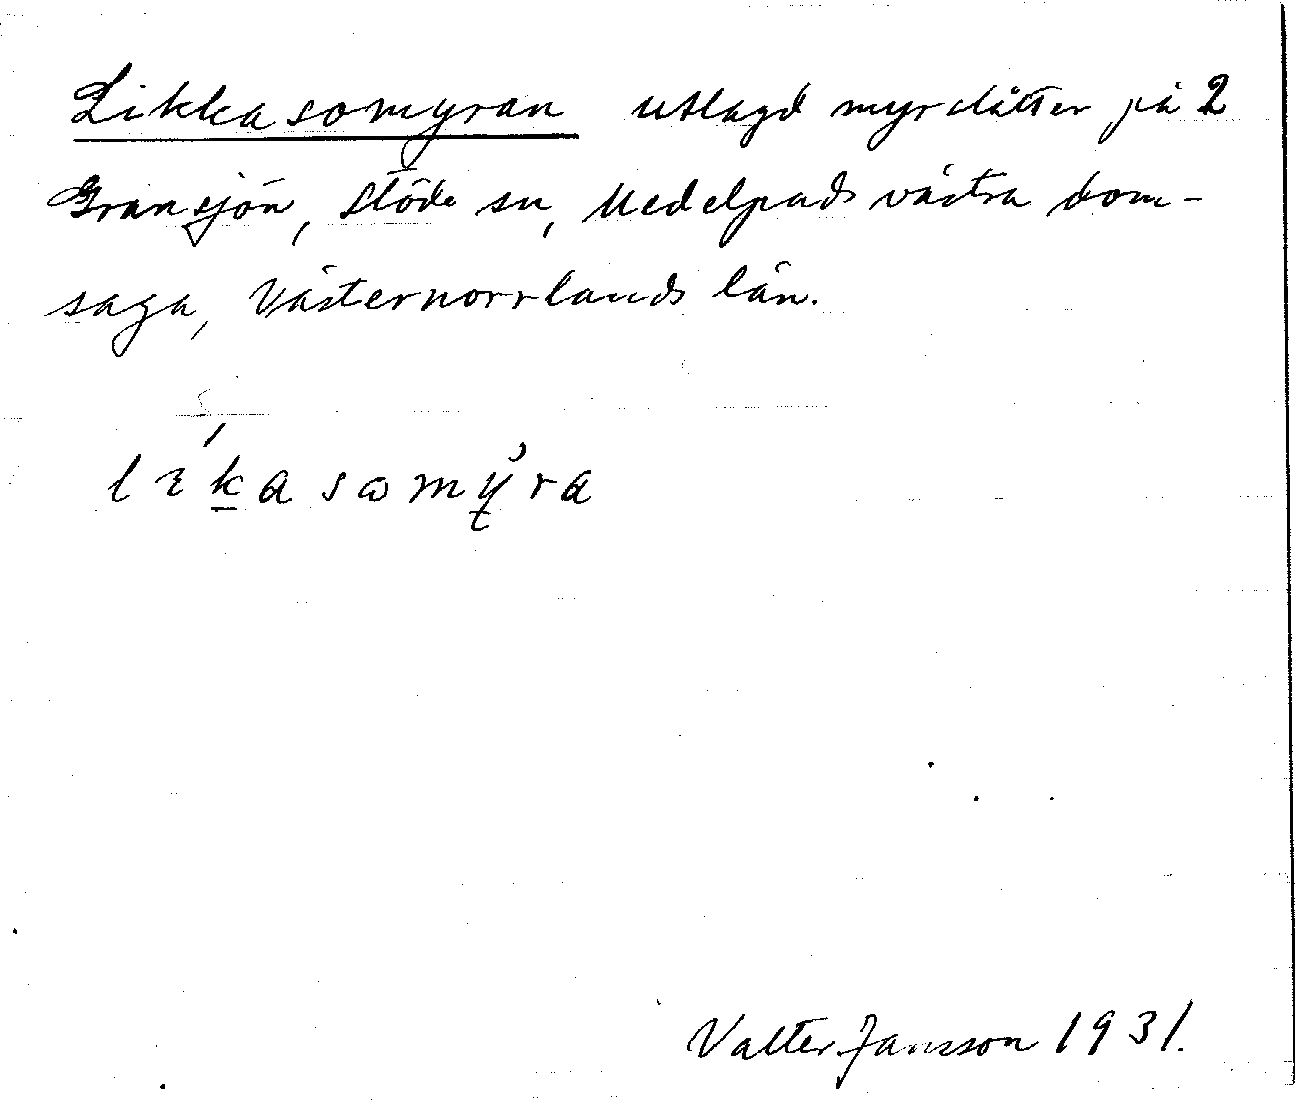 Likkasomyran utlagd myrslåtter på 2
Gransjön, Stöde sn, Medelpads västra dom-
saga, Västernorrlands län.
lɪ́kasωmy̆ra
Valter Jansson 1931.